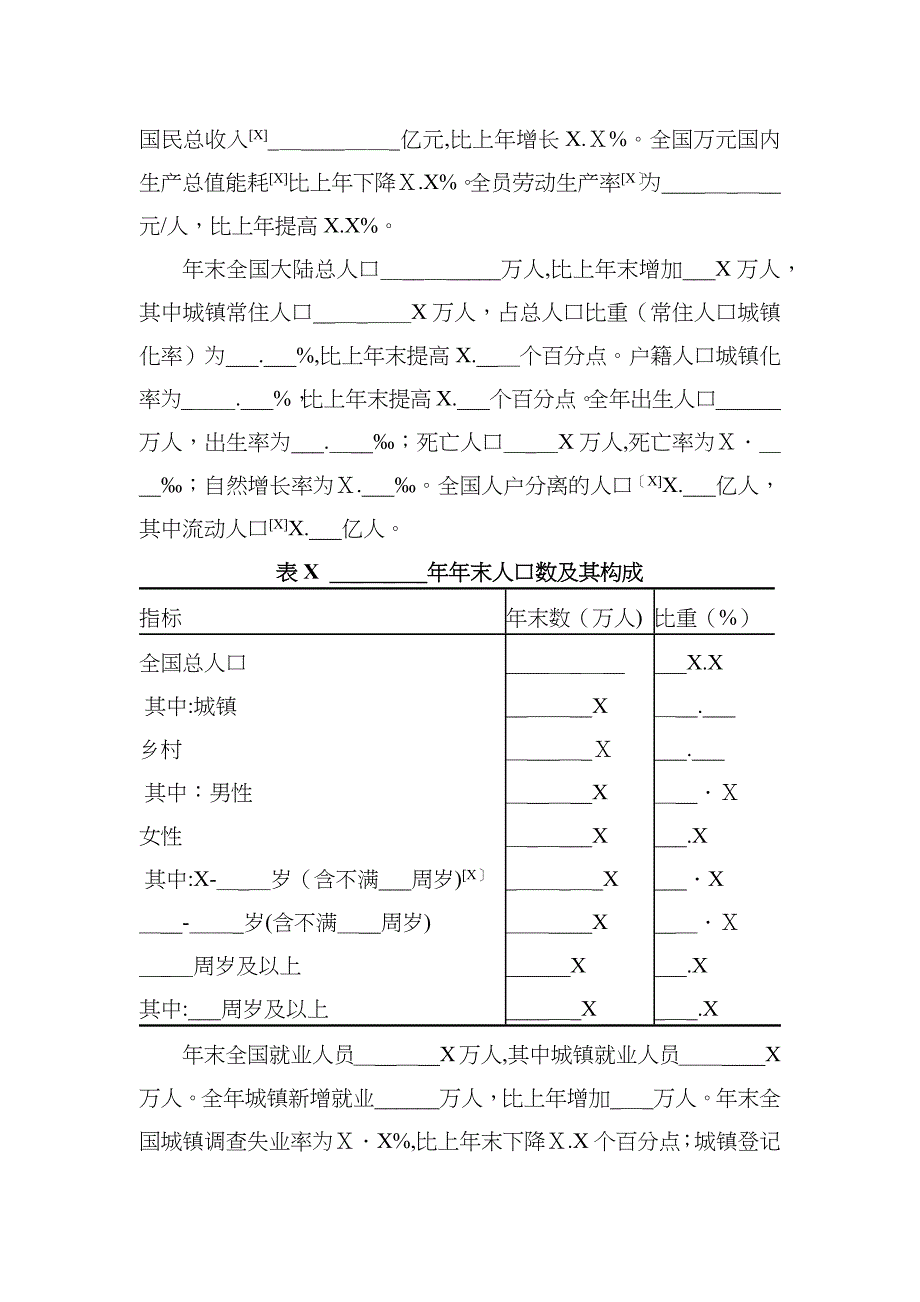 国民总收入[X]_ __ ____ ___ _亿元,比上年增长 X.Ⅹ%。全国万元国内
生产总值能耗[X]比上年下降Ⅹ.X%。全员劳动生产率[X]为______ __ __
元/人，比上年提高 X.X%。
年末全国大陆总人口____ _______万人,比上年末增加___X 万人，
其中城镇常住人口___ _ _____X 万人，占总人口比重（常住人口城镇
化率）为___.___%,比上年末提高 X.____个百分点。户籍人口城镇化
率为_____.___%，比上年末提高 X.___个百分点。全年出生人口______
万人，出生率为___.____‰；死亡人口_____X 万人,死亡率为Ⅹ．__
__‰；自然增长率为Ⅹ.___‰。全国人户分离的人口〔X]X.___亿人，
其中流动人口[X]X.___亿人。
表 X _________年年末人口数及其构成
指标 年末数（万人) 比重（%）
全国总人口 ___________ ___X.X
其中:城镇 ________X ____.___
乡村 ________Ⅹ ___.___
其中：男性 ________X ____．Ⅹ
女性 ________X ___.X
其中:X-_____岁（含不满___周岁)[X〕 _________X ___．X
____-_____岁(含不满____周岁) ________X ____．Ⅹ
_____周岁及以上 ______X ___.X
其中:___周岁及以上 _______X ____.X
年末全国就业人员________X 万人,其中城镇就业人员________X
万人。全年城镇新增就业______万人，比上年增加____万人。年末全
国城镇调查失业率为Ⅹ．X%,比上年末下降Ⅹ.X 个百分点；城镇登记